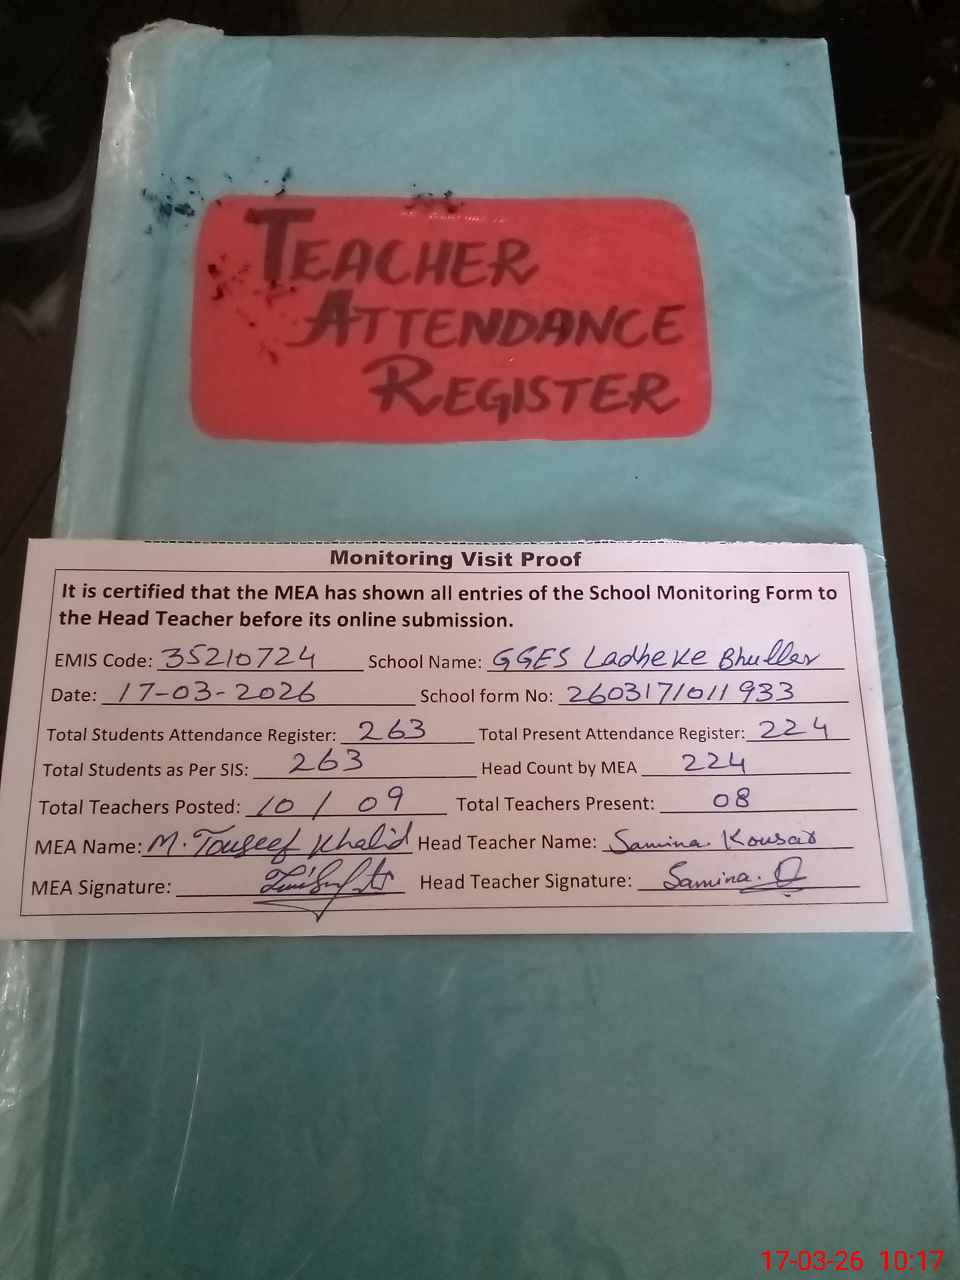 TEACHER
ATTENDANCE
REGISTER
Monitoring Visit Proof
It is certified that the MEA has shown all entries of the School Monitoring Form to
the Head Teacher before its online submission.
EMIS Code: 35210724 School Name: GGES Ladheke Bhuller
Date: 17-03-2026 School form No: 260317/011933
Total Students Attendance Register: 263 Total Present Attendance Register: 224
Total Students as Per SIS: 263 Head Count by MEA 224
Total Teachers Posted: 10 / 09 Total Teachers Present: 08
MEA Name: M. Touseef Khalid Head Teacher Name: Samina Kousar
MEA Signature: Head Teacher Signature: Samina.
17-03-26 10:17